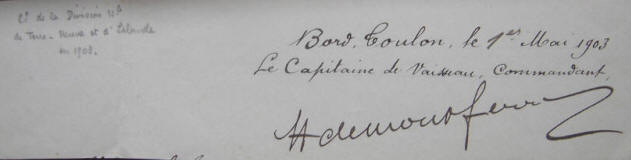 Ct de la Division Nle
de Terre-Neuve et d'Islande
en 1903.
Bord, Toulon, le 1er Mai 1903
Le Capitaine de Vaisseau, Commandant,